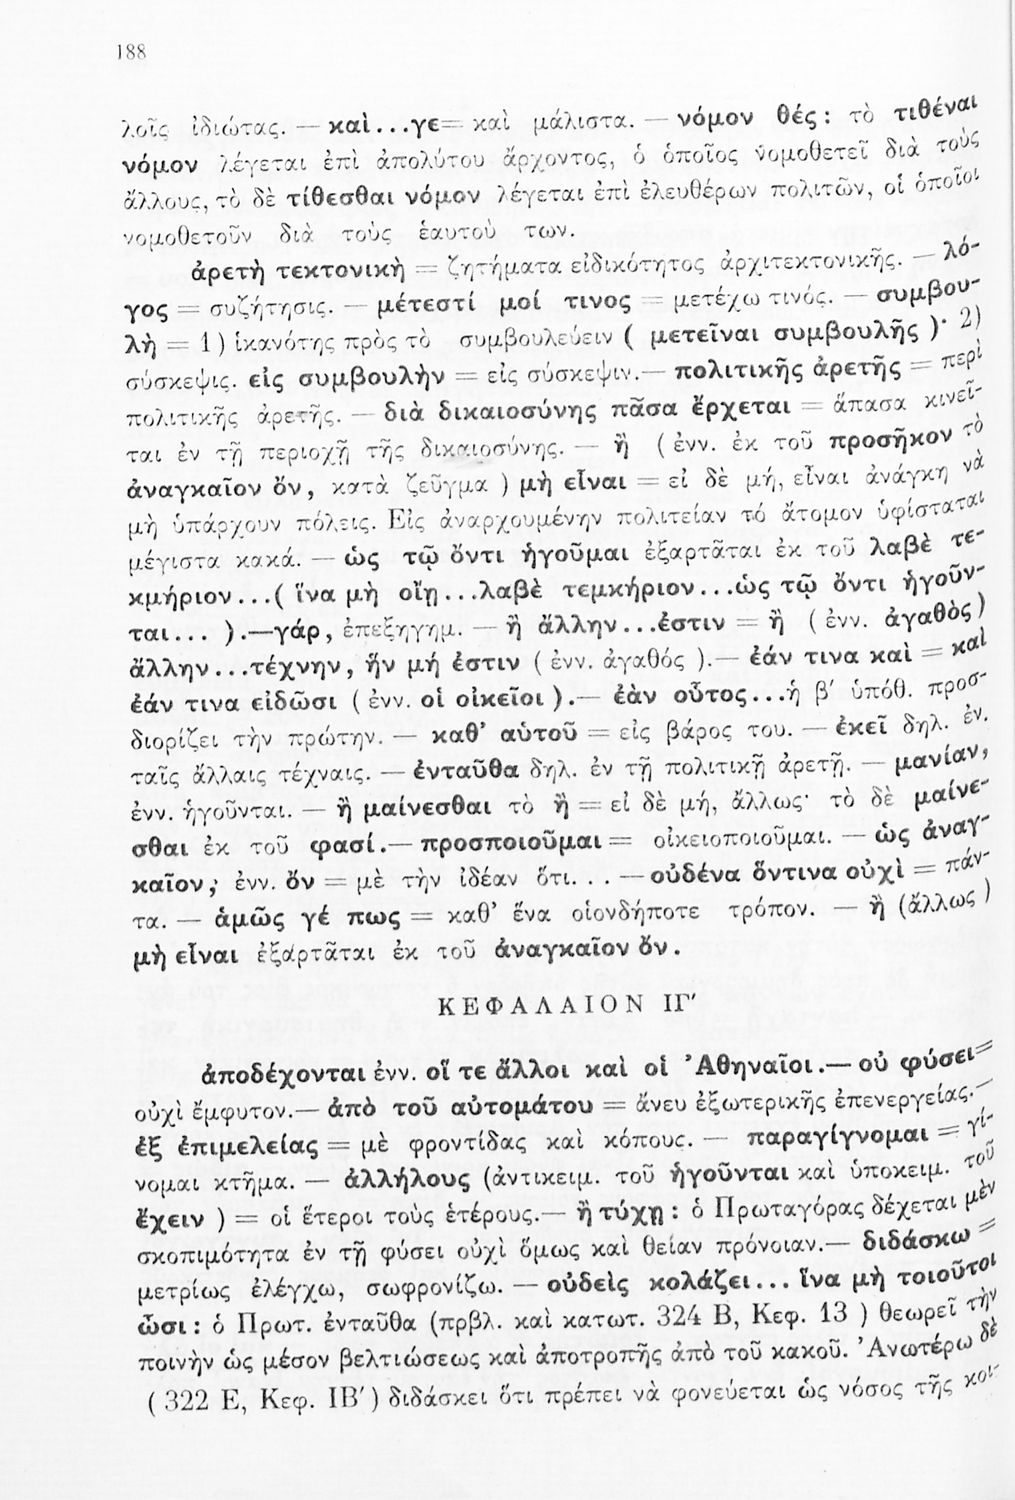 188
λοῖς ἰδιώτας. — καὶ...γε= καὶ μάλιστα. — νόμον θές: τὸ τιθέναι
νόμον λέγεται ἐπὶ ἀπολύτου ἄρχοντος, ὁ ὁποῖος νομοθετεῖ διὰ τοὺς
ἄλλους, τὸ δὲ τίθεσθαι νόμον λέγεται ἐπὶ ἐλευθέρων πολιτῶν, οἱ ὁποῖοι
νομοθετοῦν διὰ τοὺς ἑαυτοὺ των.
ἀρετὴ τεκτονικὴ = ζητήματα εἰδικότητος ἀρχιτεκτονικῆς. — λό-
γος = συζήτησις. — μέτεστί μοί τινος = μετέχω τινός. — συμβου-
λὴ = 1) ἱκανότης πρὸς τὸ συμβουλεύειν ( μετεῖναι συμβουλῆς )· 2)
σύσκεψις. εἰς συμβουλὴν = εἰς σύσκεψιν.— πολιτικῆς ἀρετῆς = περὶ
πολιτικῆς ἀρετῆς. — διὰ δικαιοσύνης πᾶσα ἔρχεται = ἅπασα κινεῖ-
ται ἐν τῇ περιοχῇ τῆς δικαιοσύνης. — ἢ ( ἐνν. ἐκ τοῦ προσῆκον τὸ
ἀναγκαῖον ὄν, κατὰ ζεῦγμα ) μὴ εἶναι = εἰ δὲ μή, εἶναι ἀνάγκη νὰ
μὴ ὑπάρχουν πόλεις. Εἰς ἀναρχουμένην πολιτείαν τό ἄτομον ὑφίσταται
μέγιστα κακά. — ὡς τῷ ὄντι ἡγοῦμαι ἐξαρτᾶται ἐκ τοῦ λαβὲ τε-
κμήριον...( ἵνα μὴ οἴῃ...λαβὲ τεμκήριον...ὡς τῷ ὄντι ἡγοῦν-
ται... ).—γάρ, ἐπεξηγημ. — ἢ ἄλλην...ἐστιν = ἢ ( ἐνν. ἀγαθὸς )
ἄλλην...τέχνην, ἥν μή ἐστιν ( ἐνν. ἀγαθός ).— ἐάν τινα καὶ = καὶ
ἐάν τινα εἰδῶσι ( ἐνν. οἱ οἰκεῖοι ).— ἐὰν οὗτος...ἡ β′ ὑπόθ. προσ-
διορίζει τὴν πρώτην. — καθ’ αὑτοῦ = εἰς βάρος του. — ἐκεῖ δηλ. ἐν.
ταῖς ἄλλαις τέχναις. — ἐνταῦθα δηλ. ἐν τῇ πολιτικῇ ἀρετῇ. — μανίαν,
ἐνν. ἡγοῦνται. — ἢ μαίνεσθαι τὸ ἢ = εἰ δὲ μή, ἄλλως· τὸ δὲ μαίνε-
σθαι ἐκ τοῦ φασί.— προσποιοῦμαι = οἰκειοποιοῦμαι. — ὡς ἀναγ-
καῖον, ἐνν. ὄν = μὲ τὴν ἰδέαν ὅτι... —οὐδένα ὅντινα οὐχὶ = πάν-
τα. — ἁμῶς γέ πως = καθ’ ἕνα οἱονδήποτε τρόπον. — ἢ (ἄλλως )
μὴ εἶναι ἐξαρτᾶται ἐκ τοῦ ἀναγκαῖον ὄν.
ΚΕΦΑΛΑΙΟΝ ΙΓ′
ἀποδέχονται ἐνν. οἵ τε ἄλλοι καὶ οἱ ’Αθηναῖοι.— οὐ φύσει=
οὐχὶ ἔμφυτον.— ἀπὸ τοῦ αὐτομάτου = ἄνευ ἐξωτερικῆς ἐπενεργείας.—
ἐξ ἐπιμελείας = μὲ φροντίδας καὶ κόπους. — παραγίγνομαι = γί-
νομαι κτῆμα. — ἀλλήλους (ἀντικειμ. τοῦ ἡγοῦνται καὶ ὑποκειμ. τοῦ
ἔχειν ) = οἱ ἕτεροι τοὺς ἑτέρους.— ἢ τύχῃ: ὁ Πρωταγόρας δέχεται μὲν
σκοπιμότητα ἐν τῇ φύσει οὐχὶ ὅμως καὶ θείαν πρόνοιαν.— διδάσκω =
μετρίως ἐλέγχω, σωφρονίζω. — οὐδεὶς κολάζει... ἵνα μὴ τοιοῦτοι
ὦσι: ὁ Πρωτ. ἐνταῦθα (πρβλ. καὶ κατωτ. 324 Β, Κεφ. 13 ) θεωρεῖ τὴν
ποινὴν ὡς μέσον βελτιώσεως καὶ ἀποτροπῆς ἀπὸ τοῦ κακοῦ. ’Ανωτέρω δὲ
( 322 Ε, Κεφ. ΙΒ′) διδάσκει ὅτι πρέπει νὰ φονεύεται ὡς νόσος τῆς κοι-